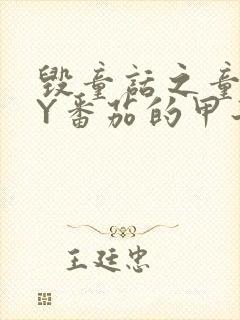 毁童话之童
Y番茄的甲
王廷忠